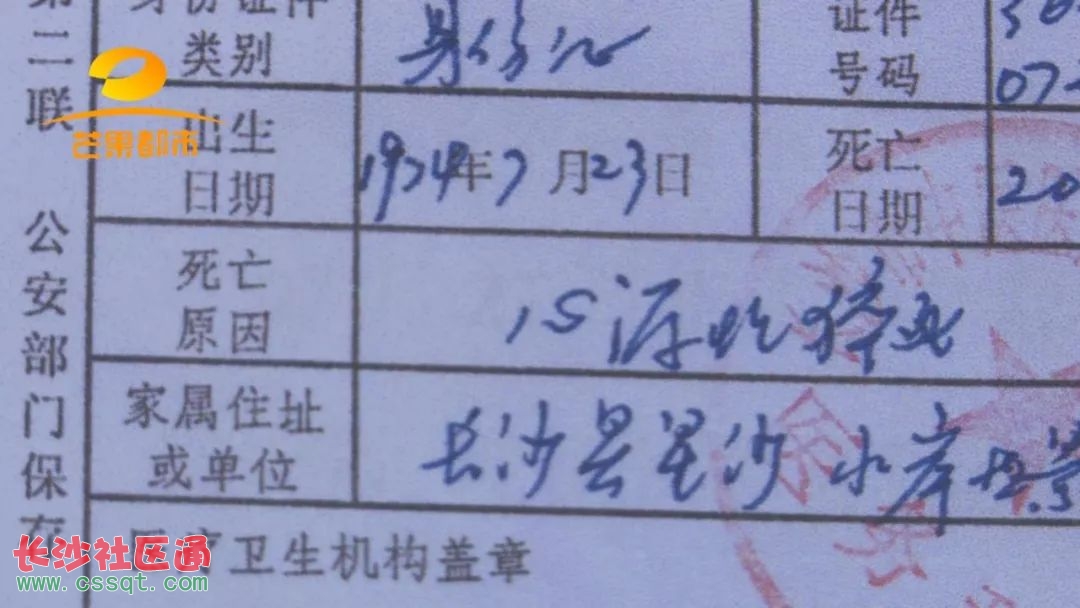 第二联 公安部门保存
身份证件 证件
类别 身份证 号码 07
芒果都市
出生 死亡
日期 1924年7月23日 日期 20
死亡
原因 心源性猝死
家属住址
或单位 长沙县星沙水岸
医疗卫生机构盖章
长沙社区通
www.cssqt.com